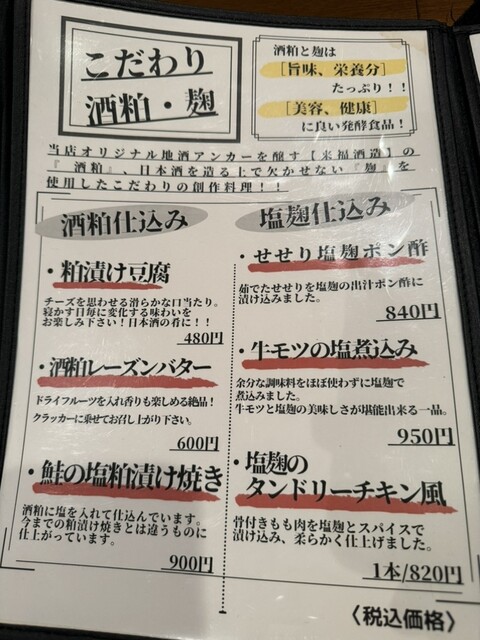 こだわり
酒粕・麹
酒粕と麹は
［旨味、栄養分］
たっぷり！！
［美容、健康］
に良い発酵食品！
当店オリジナル地酒アンカーを醸す【来福酒造】の
『酒粕』、日本酒を造る上で欠かせない『麹』を
使用したこだわりの創作料理！！
酒粕仕込み
・粕漬け豆腐
チーズを思わせる滑らかな口当たり。
寝かす日毎に変化する味わいを
お楽しみ下さい！日本酒の肴に！！
480円
・酒粕レーズンバター
ドライフルーツを入れ香りも楽しめる絶品！
クラッカーに乗せてお召し上がり下さい。
600円
・鮭の塩粕漬け焼き
酒粕に塩を入れて仕込んでいます。
今までの粕漬け焼きとは違うものに
仕上がっています。
900円
塩麹仕込み
・せせり塩麹ポン酢
茹でたせせりを塩麹の出汁ポン酢に
漬け込みました。
840円
・牛モツの塩煮込み
余分な調味料をほぼ使わずに塩麹で
煮込みました。
牛モツと塩麹の美味しさが堪能出来る一品。
950円
・塩麹の
タンドリーチキン風
骨付きもも肉を塩麹とスパイスで
漬け込み、柔らかく仕上げました。
1本/820円
〈税込価格〉